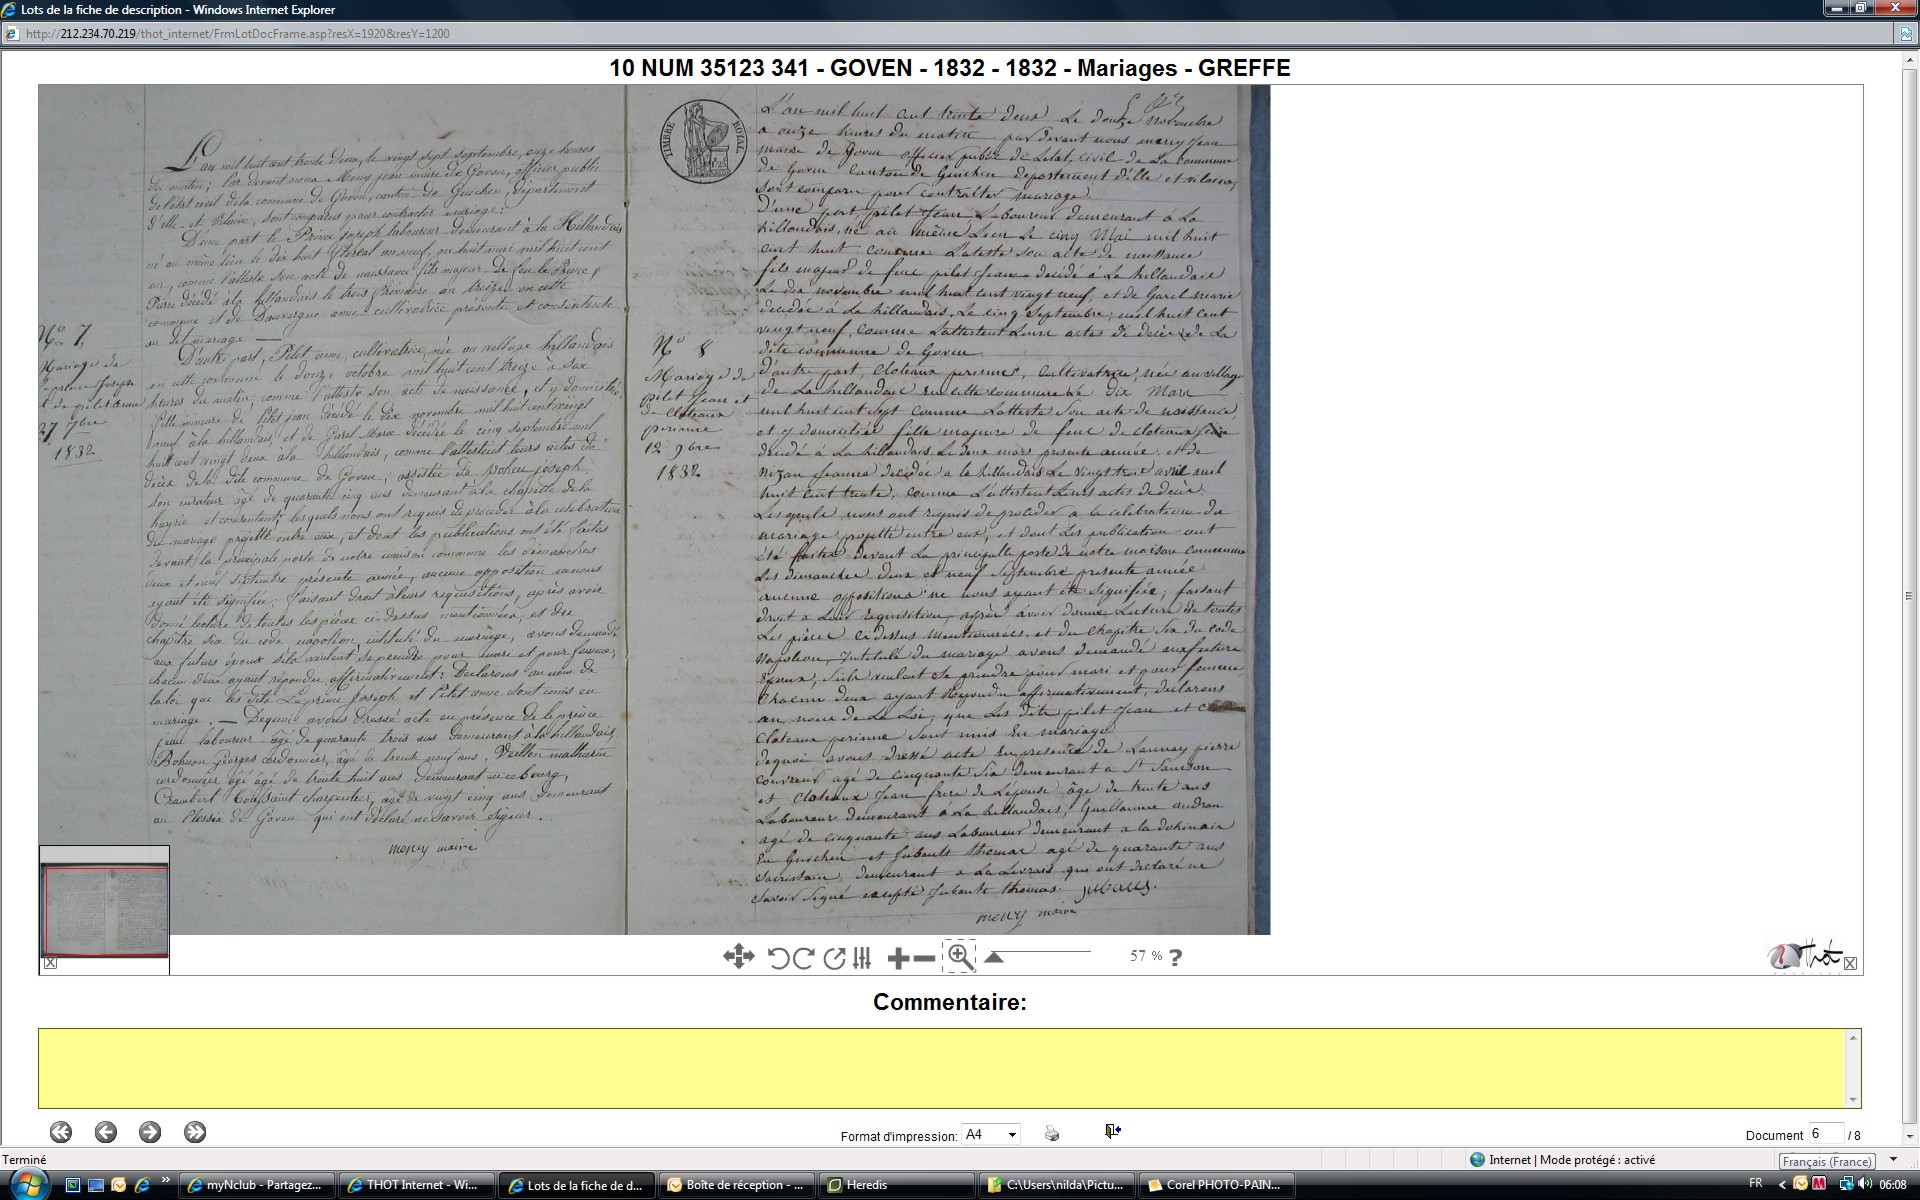 Lots de la fiche de description - Windows Internet Explorer
http://212.234.70.219/thot_internet/FrmLotDocFrame.asp?resX=1920&resY=1200
10 NUM 35123 341 - GOVEN - 1832 - 1832 - Mariages - GREFFE
L'an mil huit cent trente deux, le vingt sept septembre, onze heures
du matin; Par devant nous Meny jean maire de Goven, officier public
de l'état civil de la commune de Goven, canton de Guichen, département
d'ille-et-Vilaine, sont comparus pour contracter mariage:
D'une part le Prince joseph laboureur demeurant à la Hillandais
né au même lieu le dix huit floréal an neuf, ou huit mai mil huit cent
un, comme l'atteste son acte de naissance fils majeur de feu le Prince
Pierre décédé à la hillandais le trois frimaire an treize en cette
commune et de Dauvergne anne cultivatrice présente et consentante
au dit mariage. —
D'autre part, Pilet anne, cultivatrice, née au village hillandais
en cette commune le douze octobre mil huit cent treize à six
heures du matin, comme l'atteste son acte de naissance, et y domiciliée
fille mineure de Pilet jean décédé le dix novembre mil huit cent vingt
neuf à la hillandais, et de Garel Marie décédée le cinq septembre mil
huit cent vingt deux à la hillandais, comme l'attestent leurs actes de
décès de la dite commune de Goven; assistée de joseph
son curateur âgé de quarante cinq ans demeurant à la chapelle de la
et consentant; lesquels nous ont requis de procéder à la célébration
du mariage projetté entre eux, et dont les publications ont été faites
devant la principale porte de notre maison commune les dimanches
deux et neuf septembre présente année, aucune opposition ne nous
ayant été signifiée; faisant droit à leurs requisitions, après avoir
donné lecture de toutes les pièces ci-dessus mentionnées, et du
chapitre six du code napoléon, intitulé du mariage, avons demandé
aux futurs époux s'ils veulent se prendre pour mari et pour femme;
chacun d'eux ayant répondu affirmativement: Declarons au nom de
la loi que les dits Leprince Joseph et Pilet anne sont unis en
mariage. — Dequoi avons dressé acte en présence de le prince
jean laboureur âgé de quarante trois ans demeurant à la hillandais,
Georges cordonnier, âgé de trente neuf ans, mathurin
cordonnier âgé âgé de trente huit ans demeurant au bourg,
Toussaint charpentier, âgé de vingt cinq ans demeurant
au Plessix de Goven qui ont déclaré ne savoir signer.
meny maire
No 7,
Mariage de
Leprince Joseph
et de pilet anne
27 7bre
1832
TIMBRE ROYAL
No 8
Mariage de
pilet Jean et
de Cloteaux
perinne
12 9bre
1832
L'an mil huit cent trente deux Le douze novembre
a onze heures du matin par devant nous meny Jean
maire de Goven officier public de L'etat civil de La commune
de Goven canton de Guichen departement d'ille et vilaine,
sont comparu pour contracter mariage
D'une part, pilet Jean, Laboureur demeurant à La
hillandais, né au même Lieu Le cinq Mai mil huit
cent huit comme L'ateste son acte de naissance
fils majeur de feue pilet Jean decédé à La hillandaie
Le dix novembre mil huit cent vingt neuf, et de Garel marie
decédée à La hillandais, Le cinq Septembre, mil huit cent
vingt neuf, comme L'attestent Leurs actes de décès de La
dite commune de Goven
d'autre part, Cloteaux perinnes, cultivatrice, née au village
de La hillandais en cette commune Le dix Mars
mil huit cent sept comme L'atteste son acte de naissance,
et y domiciliée fille majeure de feue de cloteaux
decédé à La hillandais Le deux mars presente année et de
Nizan Jeanne decédée a la hillandais Le vingt trois avril mil
huit cent trente, comme L'attestent Leurs actes de decès.
Lesquels nous ont requis de proceder a la celebration du
mariage projetté entre eux, et dont Les publication ont
été faites devant La principalle porte de notre maison commune
Les dimanches deux et neuf Septembre presente année
aucunne oppositions ne nous ayant été signifiée; faisant
droit a Leur requisition, après avoir donné Lecture de toutes
Les pièces ci dessus mentionnées, et du Chapitre six du code
Napoleon, Intitulé du mariage avons demandé aux futurs
Epoux, s'ils veulent se prendre pour mari et pour femme
Chacun deux ayant repondu affirmativement, declarons
au nom de La Loi, que Les dits pilet Jean et
Cloteaux perinne sont unis En mariage
dequoi avons dressé acte En presence de Launay pierre
couvreur agé de cinquante six demeurant a St Samson
et cloteaux Jean frere de L'épouse âge de trente ans
Laboureur demeurant à La hillandais, Guillaume audran
agé de cinquante ans Laboureur demeurant a la
En Guichen et Jubault thomas agé de quarante ans
sacristain, demeurant a La qui ont declaré ne
savoir signé excepté Jubault thomas. jubault.
meny maire
57 %
?
Thot
Commentaire:
Format d'impression:
A4
Document
6
/ 8
Terminé
Internet | Mode protégé : activé
Français (France)
myNclub - Partagez...
THOT Internet - Wi...
Lots de la fiche de d...
Boîte de réception - ...
Heredis
C:\Users\nilda\Pictu...
Corel PHOTO-PAIN...
FR
06:08